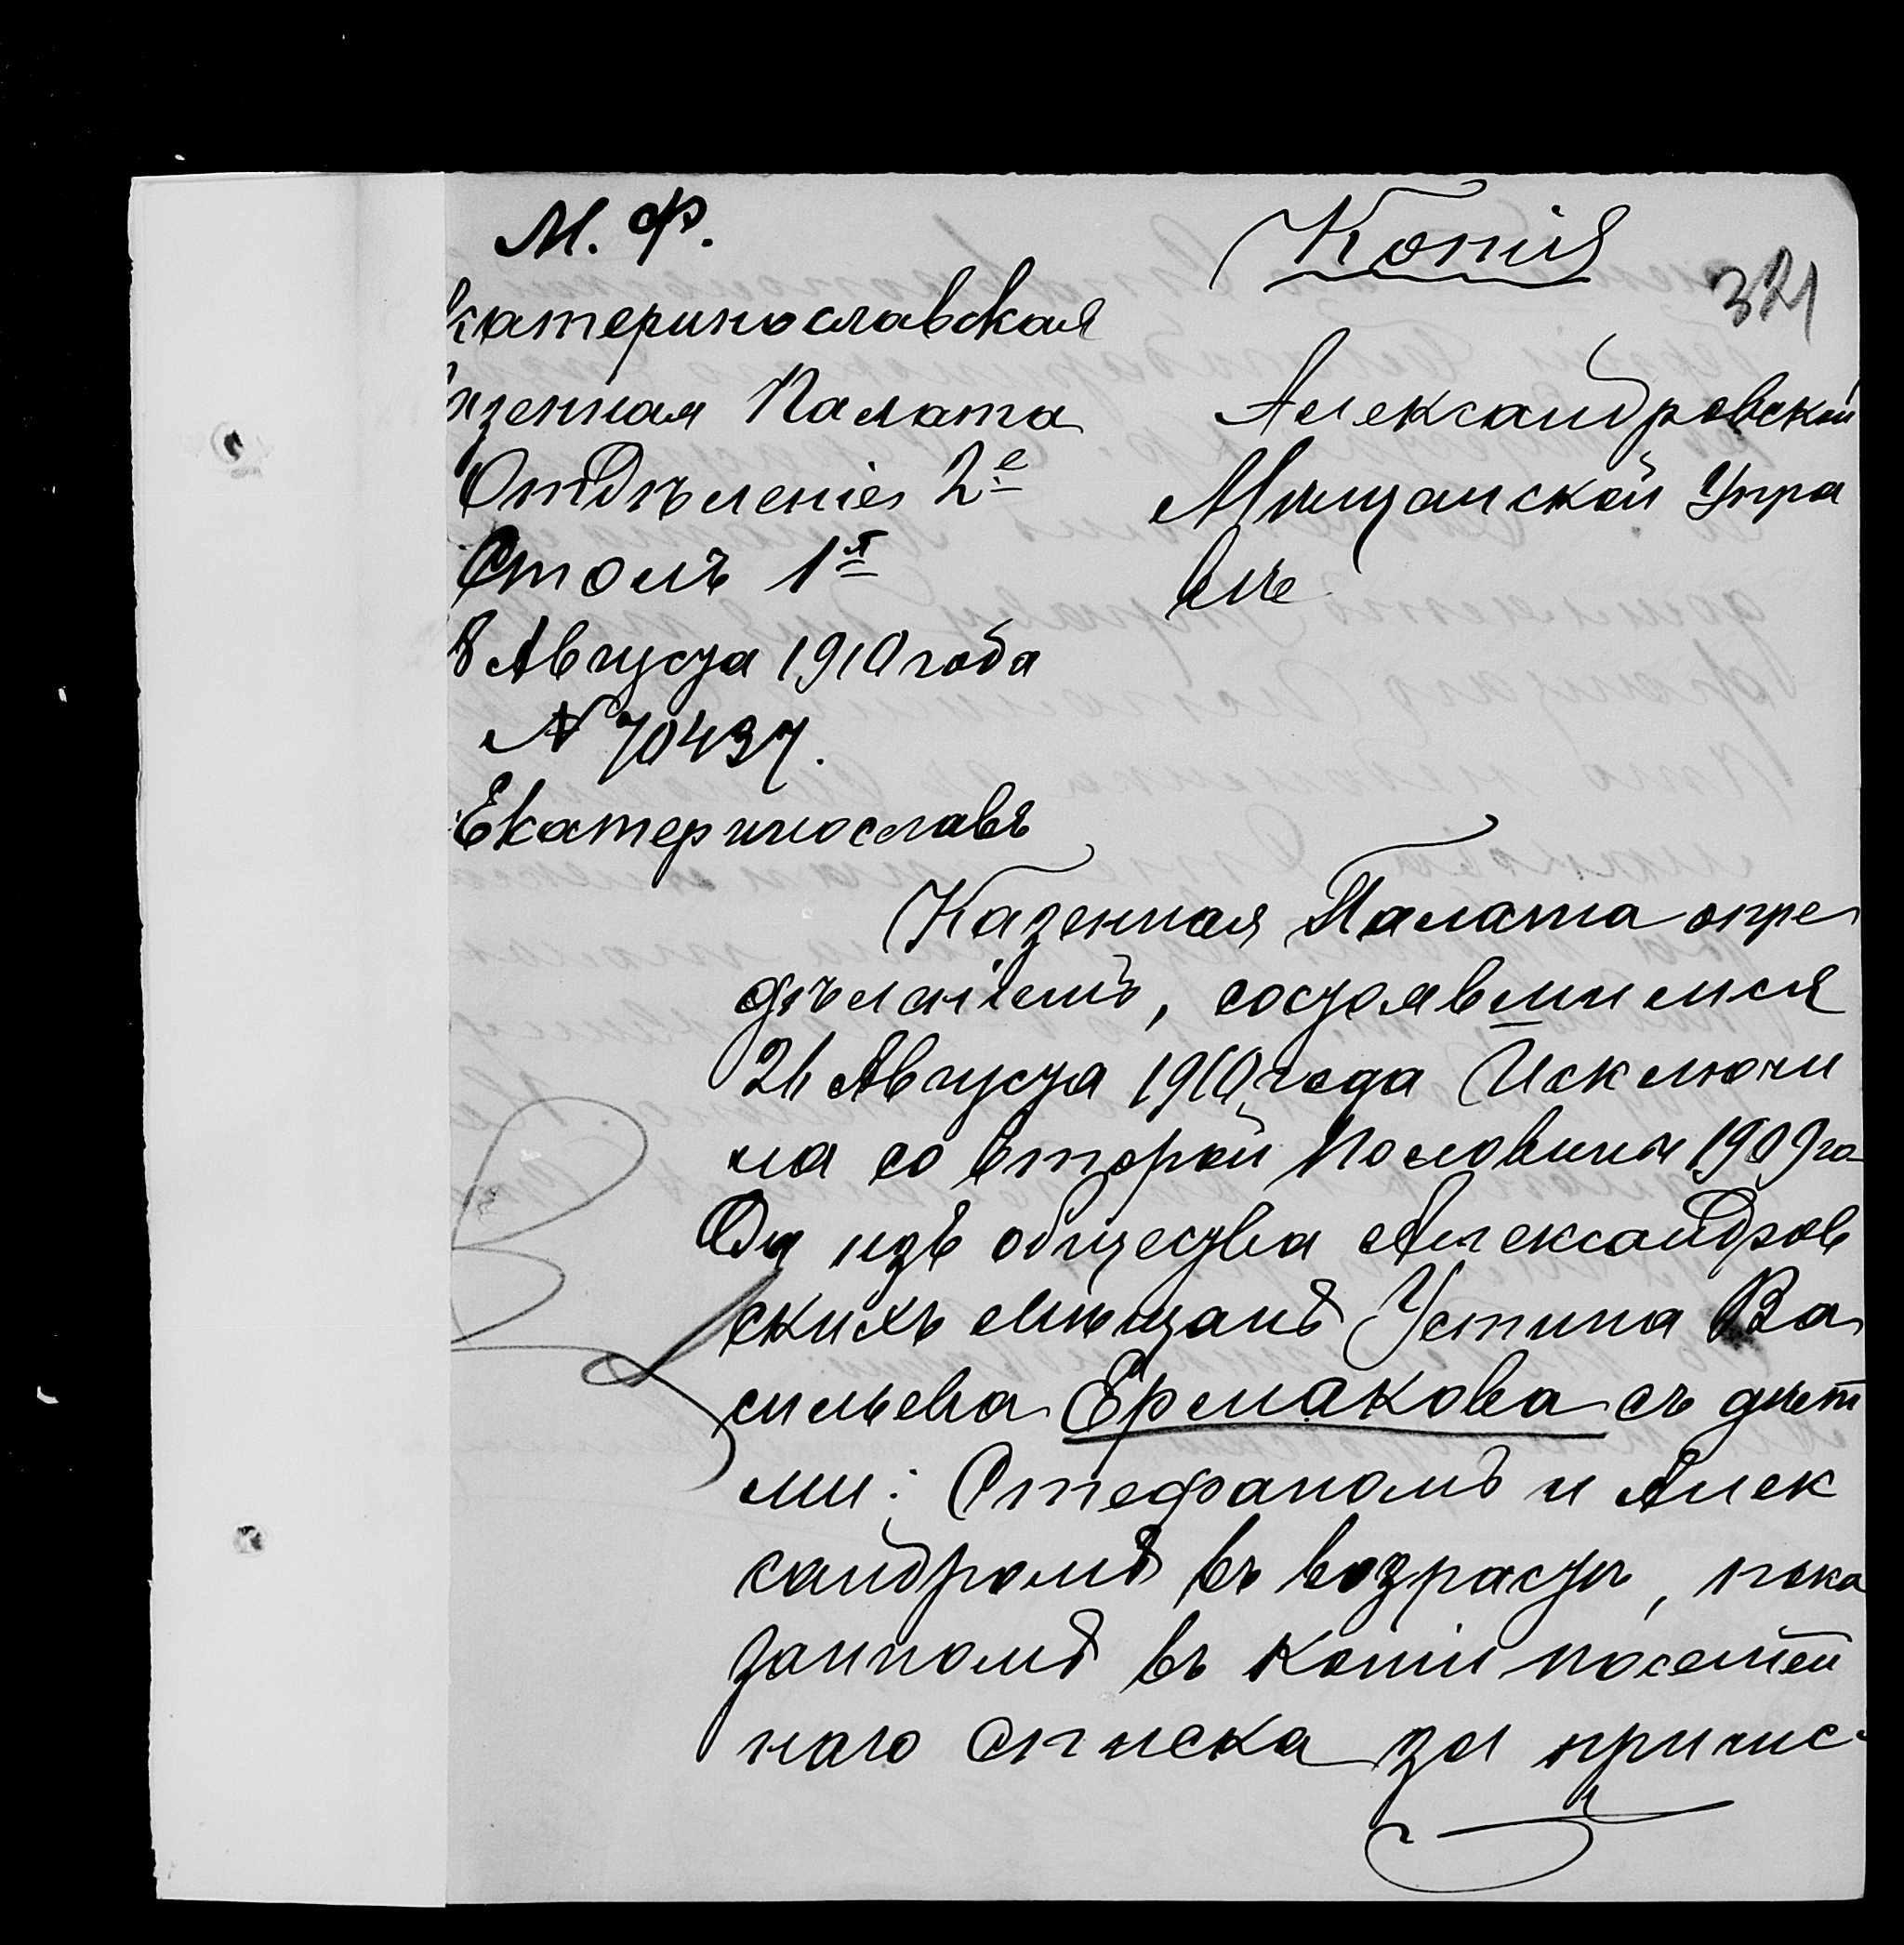 М. Ф.
Копія
321
катеринославская
зенная Палата
Отдѣленіе 2е
Столъ 1й
8 Августа 1910 года
N 70437.
Екатеринославъ
Александровской
Мѣщанской Упра
вѣ
Казенная Палата опре
дѣленіемъ, состоявшимся
21 Августа 1910 года Исключи
ла со второй половины 1909 го
да изъ общества Александров
скихъ мѣщанъ Устина Ва
сильева Ермакова съ дѣть
ми: Стефаномъ и Алек
сандромъ въ возрастѣ, пока
занномъ въ копіи посемей
наго списка за причис-